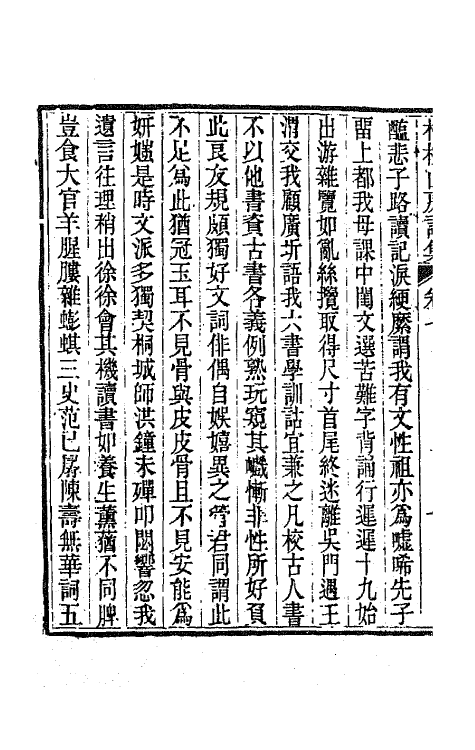 醯悲子路讀記淚綆縻謂我有文性祖亦為噓唏先子
畱上都我母課中閨文選苦難字背誦行遲遲十九始
出游雜覽如亂絲攬取得尺寸首尾終迷離吳門遇王
渭交我顧廣圻語我六書學訓詁宜兼之凡校古人書
不以他書資古書各義例熟玩窺其巇慚非性所好負
此良友規頗獨好文詞俳偶自娛嬉異之管君同謂此
不足為此猶冠玉耳不見骨與皮皮骨且不見安能為
妍媸是時文派多獨契桐城師洪鐘未殫叩閟響忽我
遺言往理稍出徐徐會其機讀書如養生薰猶不同脾
豈食大官羊腥膻雜蟛蜞三史范已孱陳壽無華詞五